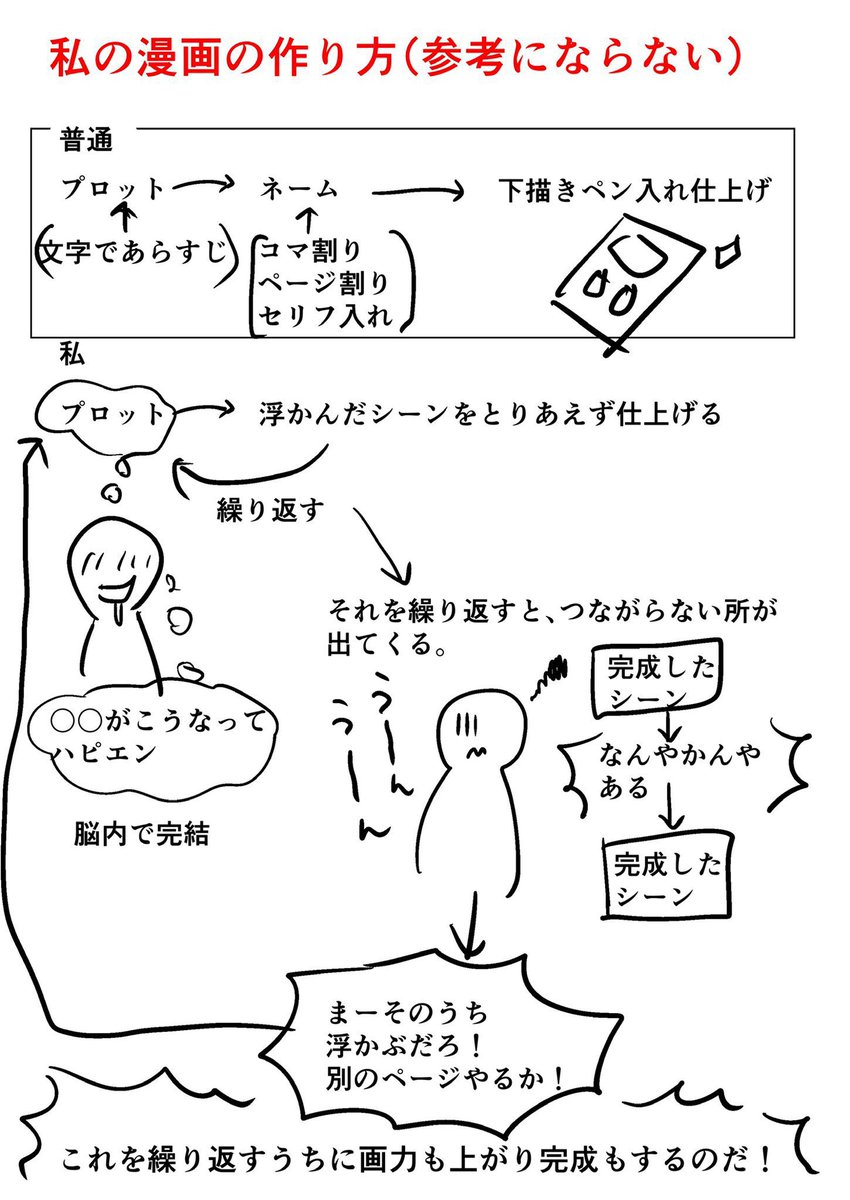 私の漫画の作り方(参考にならない)
普通
プロット
ネーム
下描きペン入れ仕上げ
(文字であらすじ)
コマ割り
ページ割り
セリフ入れ
私
プロット
浮かんだシーンをとりあえず仕上げる
繰り返す
それを繰り返すと、つながらない所が
出てくる。
○○がこうなって
ハピエン
脳内で完結
うーん
うーん
完成した
シーン
なんやかんや
ある
完成した
シーン
まーそのうち
浮かぶだろ！
別のページやるか！
これを繰り返すうちに画力も上がり完成もするのだ！